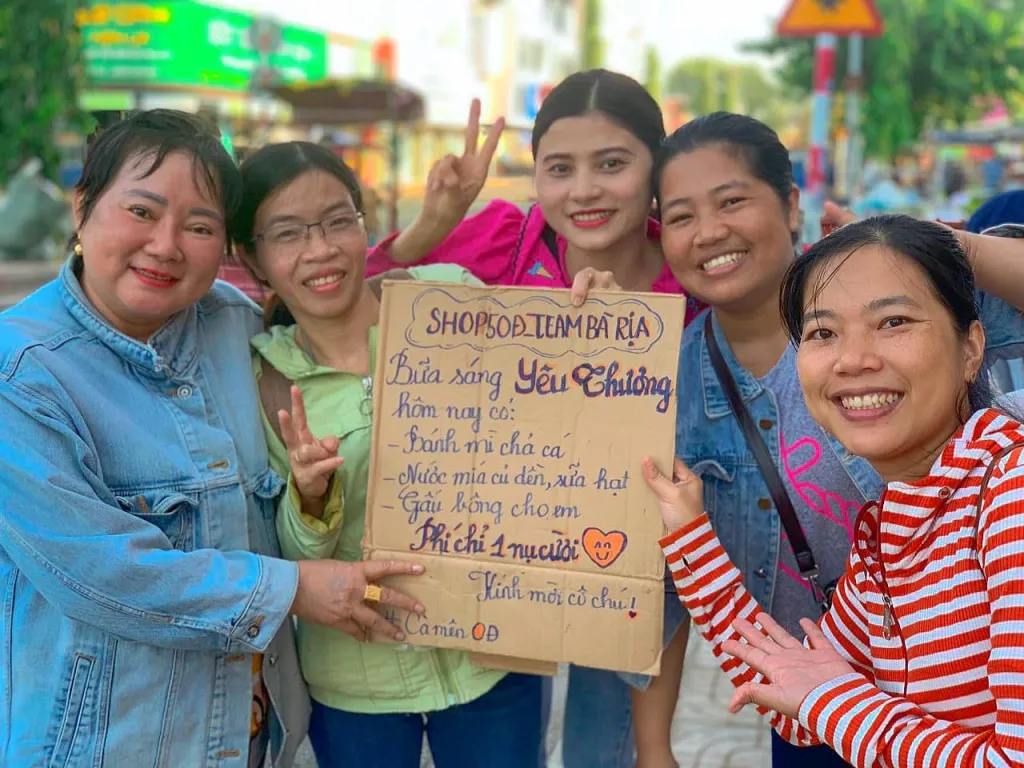 SHOP50Đ_TEAM BÀ RỊA
Bữa sáng Yêu Thương
hôm nay có:
- Bánh mì chả cá
- Nước mía củ dền, sữa hạt
- Gấu bông cho em
Phí chỉ 1 nụ cười
Kính mời cô chú!
# Cà mên 0Đ